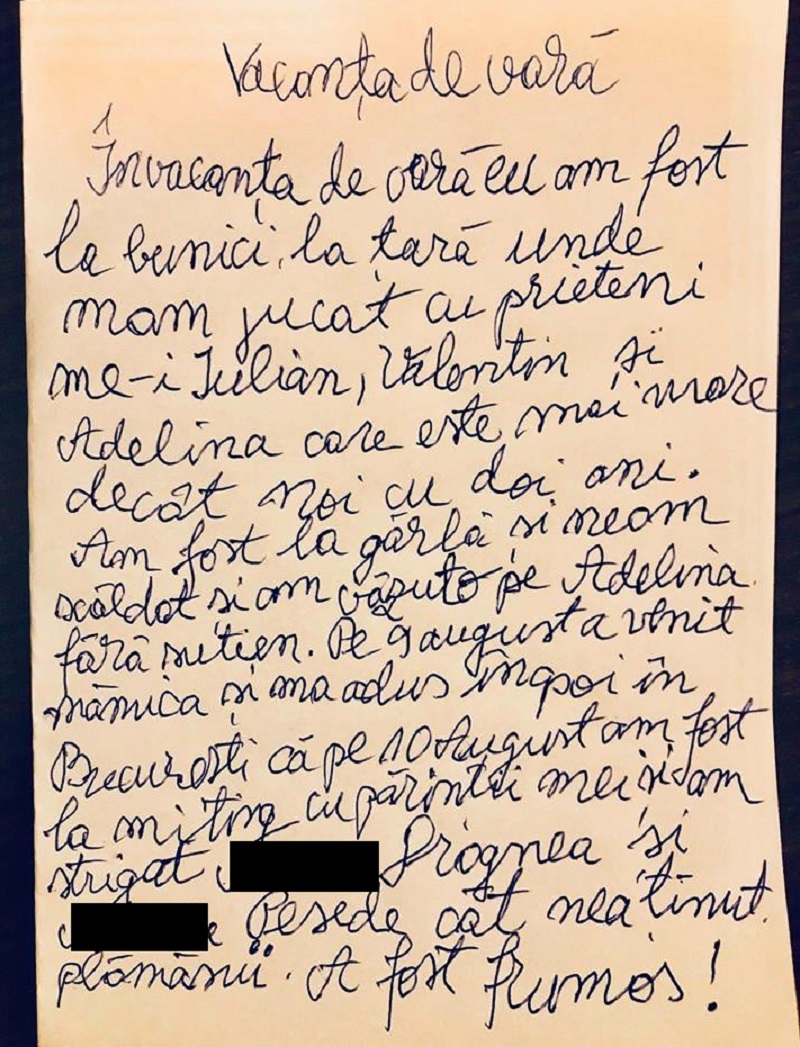 Vacanța de vară
În vacanța de vară eu am fost
la bunici, la țară unde
mam jucat cu prieteni
me-i Iulian, Valentin și
Adelina care este mai mare
decât noi cu doi ani.
Am fost la gârlă și neam
scăldat și am văzuto pe Adelina
fără sutien. Pe 9 august a venit
mămica și ma adus înapoi în
București că pe 10 August am fost
la miting cu părinții mei și am
strigat Drognea și
Pesede cât nea ținut
plămânii. A fost frumos!